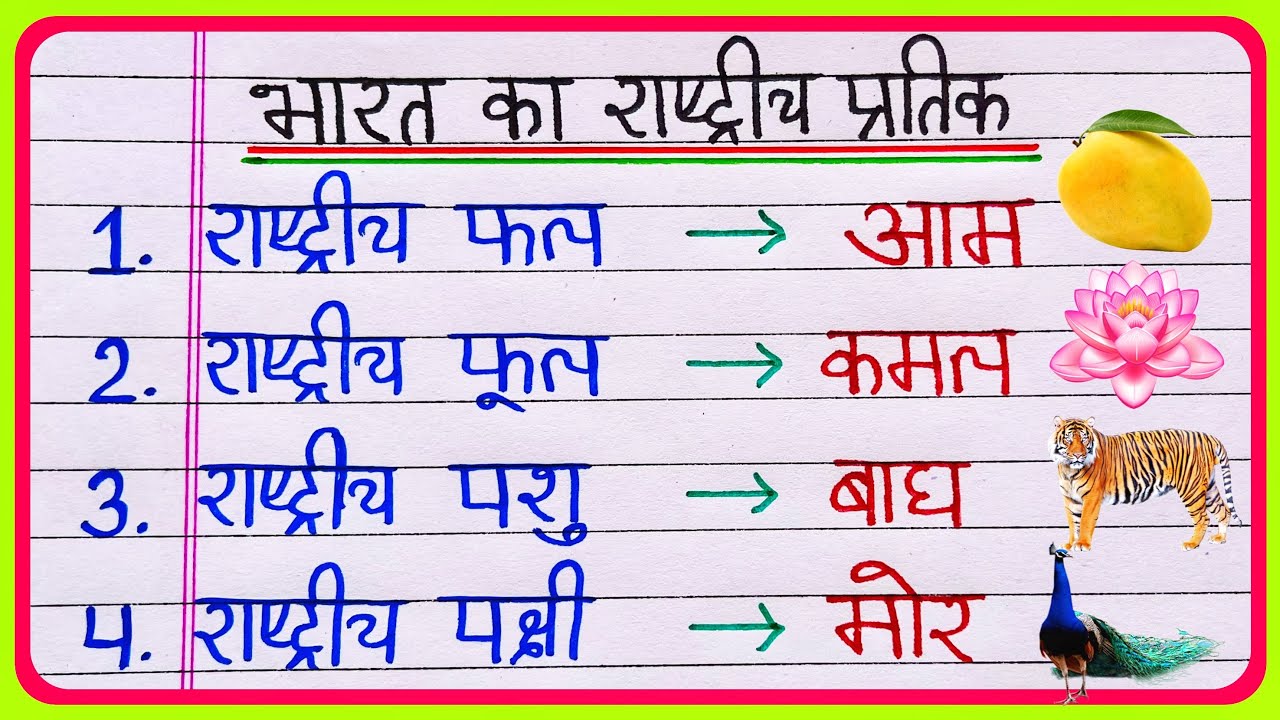 भारत का राष्ट्रीय प्रतिक
1. राष्ट्रीय फल → आम
2. राष्ट्रीय फूल → कमल
3. राष्ट्रीय पशु → बाघ
4. राष्ट्रीय पक्षी → मोर